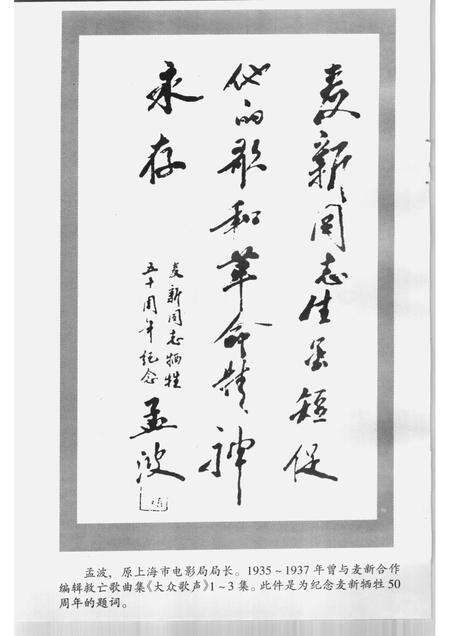 麦新同志生命短促
他的歌和革命精神
永存
麦新同志牺牲
五十周年纪念
孟波
孟波，原上海市电影局局长。1935～1937年曾与麦新合作
编辑救亡歌曲集《大众歌声》1～3集。此件是为纪念麦新牺牲50
周年的题词。